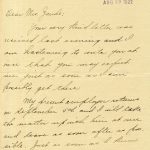 AUG 19 1921
Dear Mrs.
Your very kind letter was
received last evening and I
am hastening to write you at
once that you may expect
me just as soon as I can
possibly get there.
My present employer returns
on September 5th and I will take
the matter up with him at once
and leave as soon after as pos-
sible. Just as soon as I